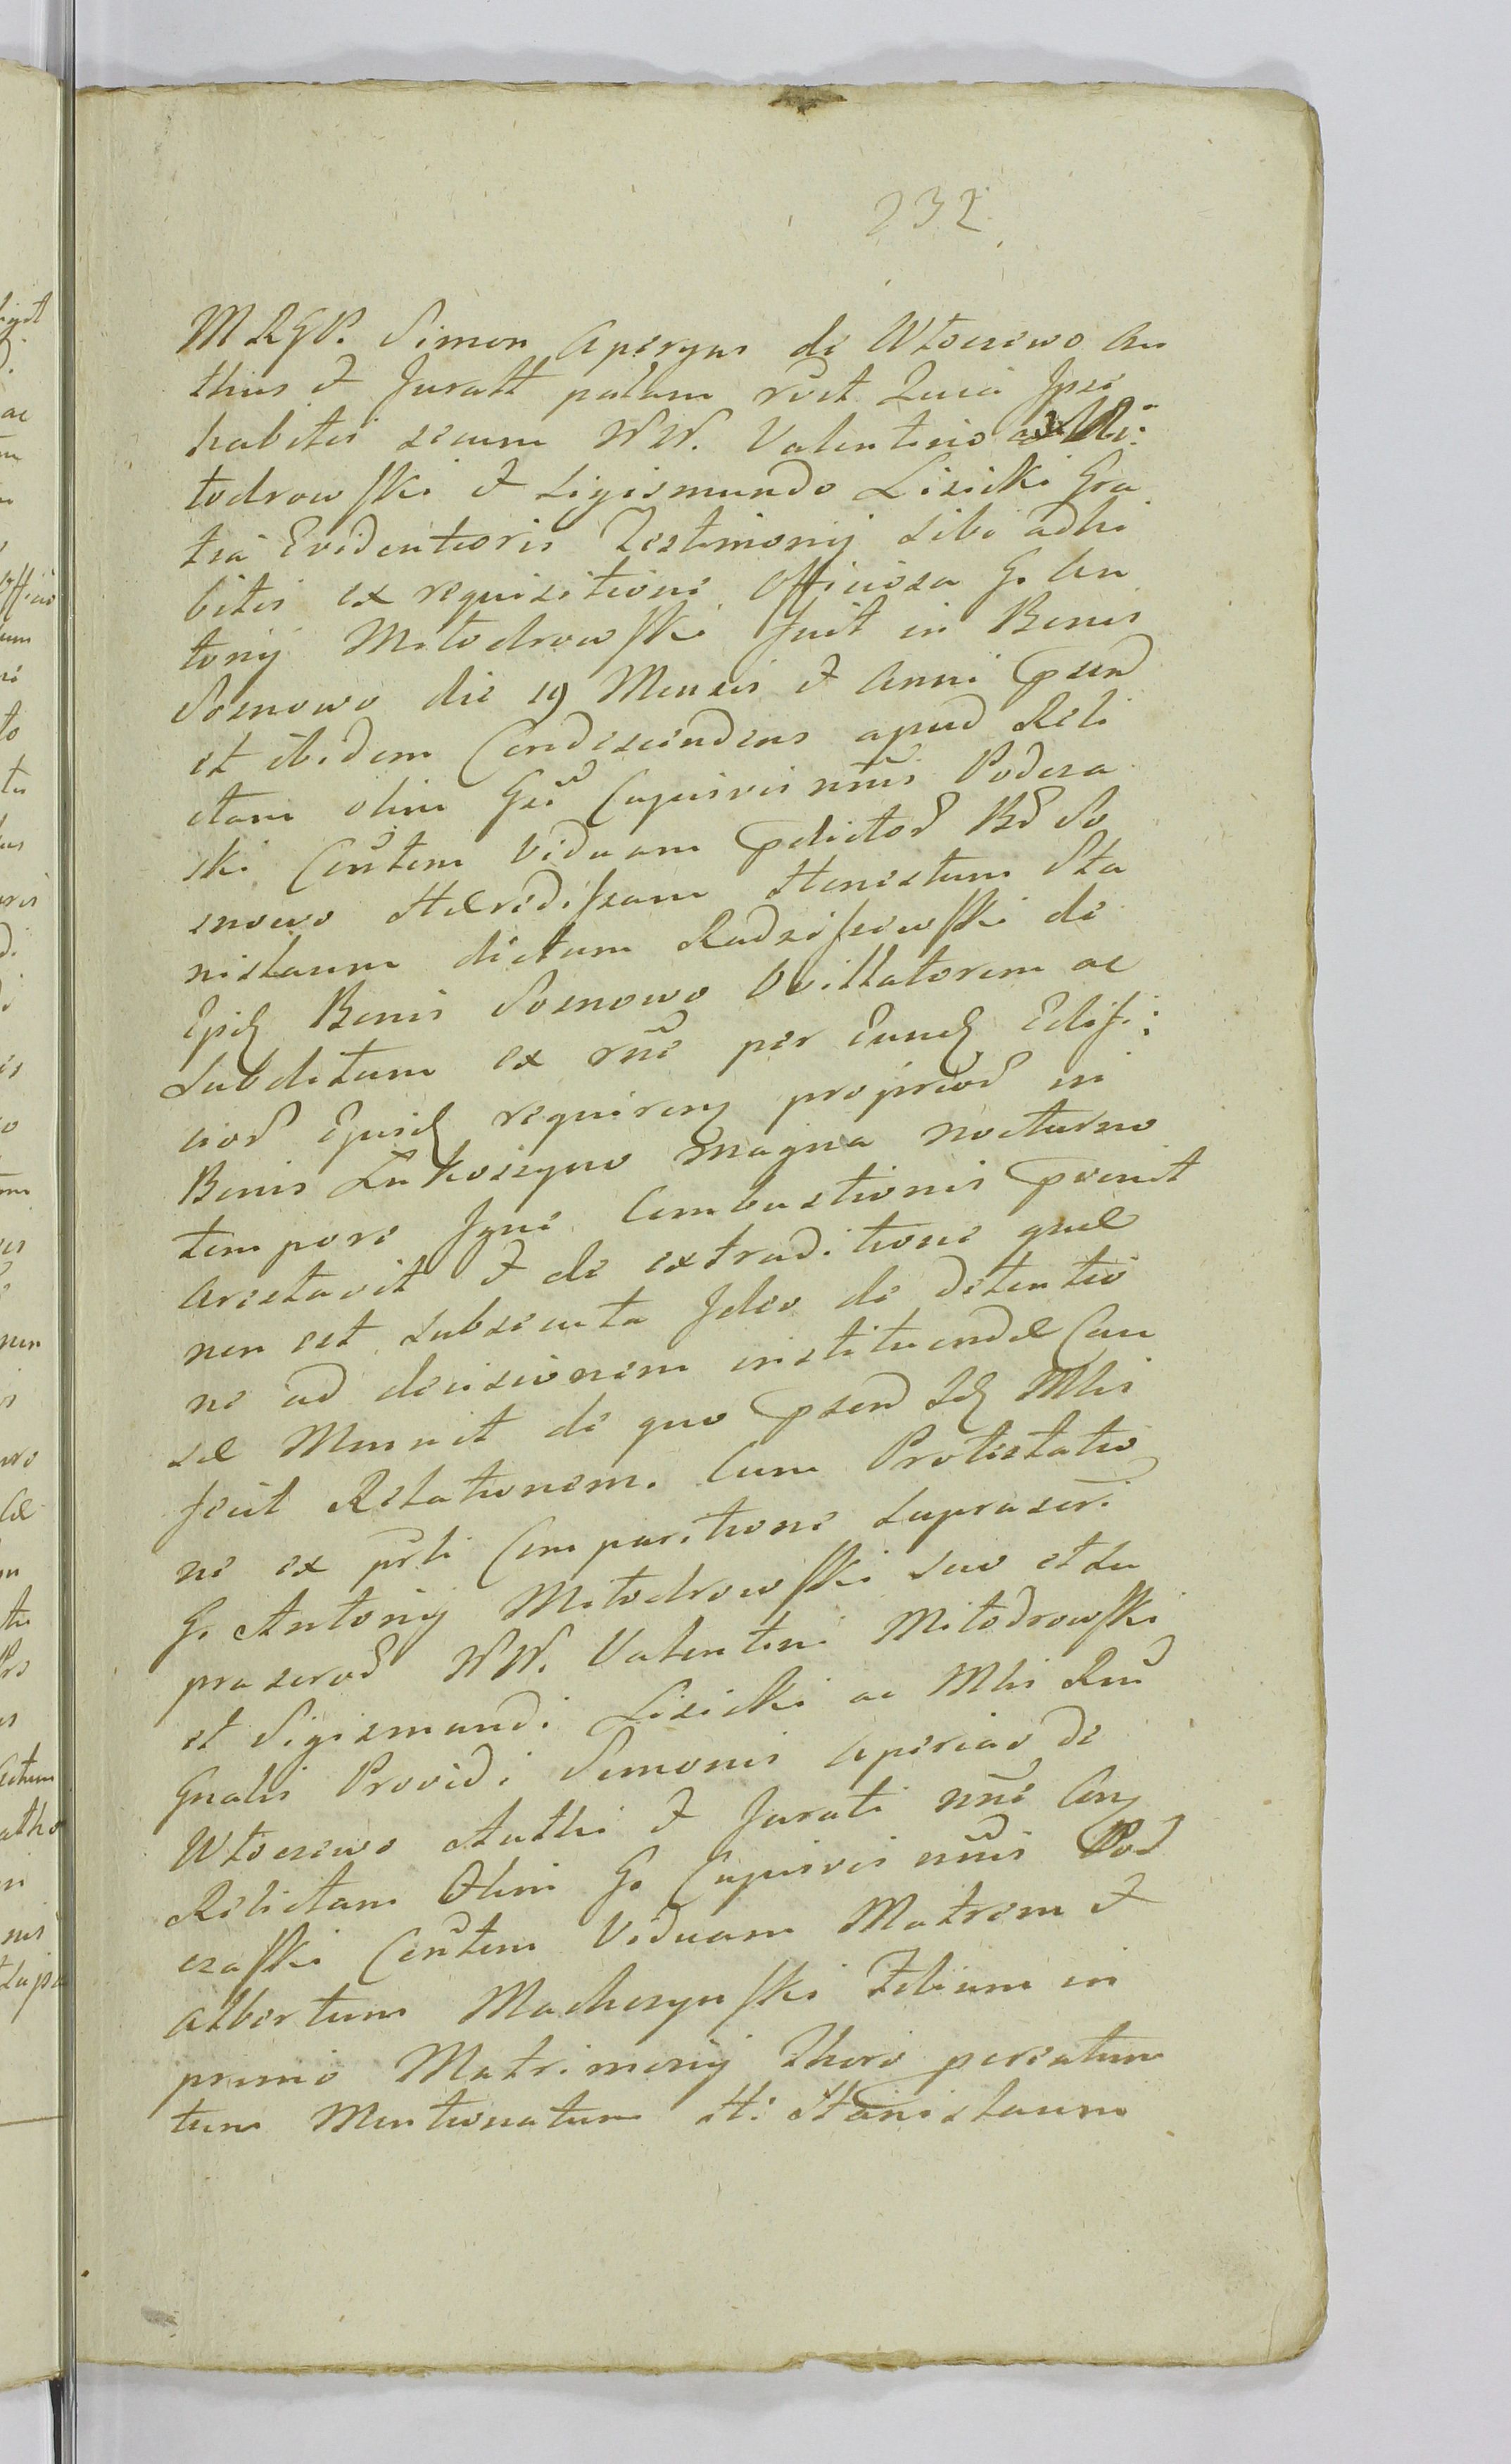 232
MRGP. Simon Aperyas de Wtoscewo Au
thus et Juratt palam rūit Quia Ipse
habitis secum NN. Valentino Mi:
todrowski et Sigismundo Lisicki Gra
tia Evidentioris Testimonij sibi adhi
bitis ex requisitione officiosa G. An
tonij Mitodrowski fuit in Bonis
Sosnowo die 19 Mensis et Anni psen
et ibidem Condescendens apud Reli
ctam olim Gsi Cujusvis nnis Podcza
ski Cenītem Viduam
snowo Hæredissam Honestum Sta
nislaum dictum Radzissewski de
Bonis Sosnowo Ovillatorem ac
Subditum ex rne per Eund Edifi:
ciod Ejusd requiren propriod in
Bonis Lukoszyno magna nocturno
tempore Igne Combustionis pvenit
Arestavit et de extraditione quæ
non est subsecuta Ideo de detentio
ne ad decisionem instituendæ Cau
sæ Monuit de quo psens Mlis
fecit Relationem. Cum Protestatio
ne ex prti Comparitione suprascri
G. Antonij Mitodrowski suo et su
prascrod NN. Valentini Mitodrowski
et Sigismundi Lisicki ac Mlis Rni
Gnalis Providi Simonis Aperias de
Wtoscewo Authi et Jurati nne Con
Relictam Olim G. Cujusvis nnis Pod
czaski Cenītem Viduam Matrem et
Albertum Machczynski Filium in
primo Matrimonij Thoro porcatum
tum Mentionatum H: Stanislaum